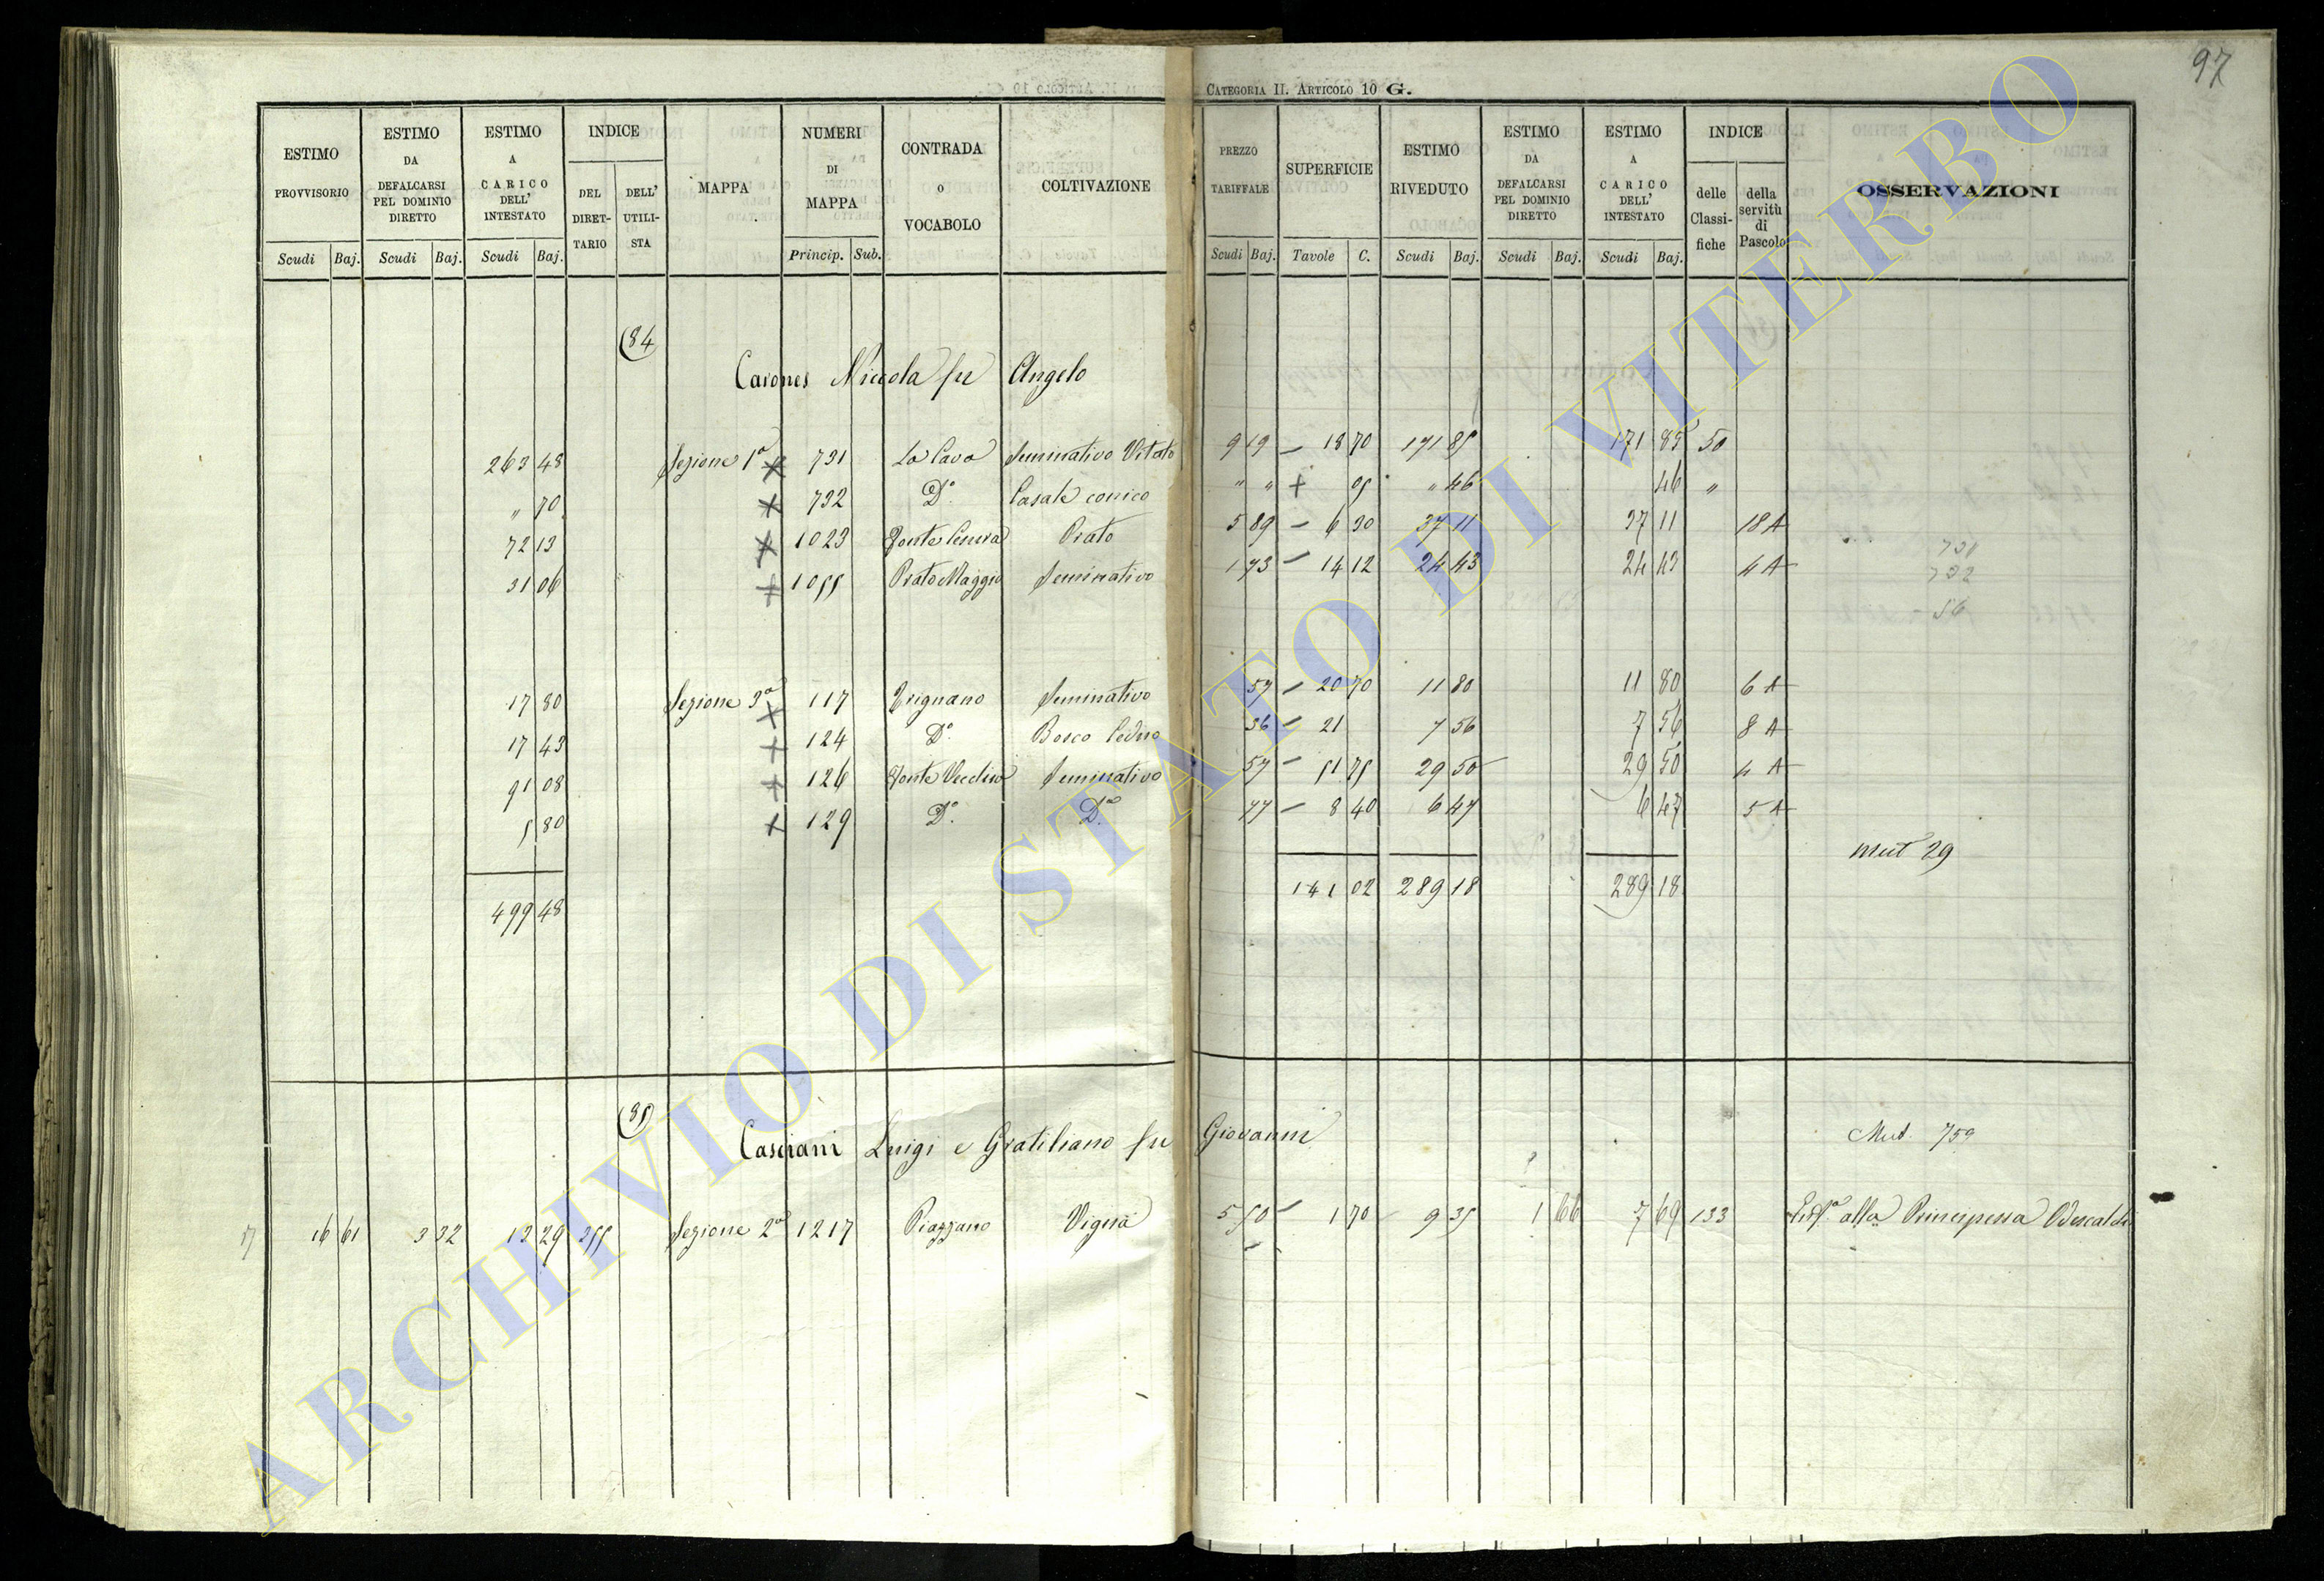 97
CATEGORIA II. ARTICOLO 10 G.
ESTIMO PROVVISORIO Scudi Baj.
ESTIMO DA DEFALCARSI PEL DOMINIO DIRETTO Scudi Baj.
ESTIMO A CARICO DELL' INTESTATO Scudi Baj.
INDICE DEL DIRET- TARIO DELL' UTILI- STA
MAPPA
NUMERI DI MAPPA Princip. Sub.
CONTRADA O VOCABOLO
COLTIVAZIONE
PREZZO TARIFFALE Scudi Baj.
SUPERFICIE Tavole C.
ESTIMO RIVEDUTO Scudi Baj.
ESTIMO DA DEFALCARSI PEL DOMINIO DIRETTO Scudi Baj.
ESTIMO A CARICO DELL' INTESTATO Scudi Baj.
INDICE delle Classi- fiche della servitù di Pascolo
OSSERVAZIONI
84
Carones Niccola fu Angelo
263 48 Sezione 1ª 731 La Cava Seminativo Vitato 9 19 – 18 70 171 85 171 85 50
" 70 732 Dº Casale conico " " + 05 " 46 46 "
72 13 1023 Prato 5 89 – 6 30 37 11 37 11 18 A
31 06 1055 Prato Maggio Seminativo 1 73 – 14 12 24 43 24 43 4 A
731
732
56
17 80 Sezione 3ª 117 Trignano Seminativo 57 – 20 70 11 80 11 80 6 A
17 43 124 Dº Bosco Ceduo 36 – 21 7 56 7 56 8 A
91 08 126 Fonte Vecchia Seminativo 57 – 51 75 29 50 29 50 4 A
5 80 129 Dº Dº 77 – 8 40 6 47 6 47 5 A
Mut 29
499 48 141 02 289 18 289 18
85
Casciani Luigi e Gratiliano fu Giovanni
Mut. 759
16 61 3 32 13 29 255 Sezione 2ª 1217 Piazzano Vigna 5 50 – 1 70 9 35 1 66 7 69 133 alla Principessa Odescalchi
ARCHIVIO DI STATO DI VITERBO